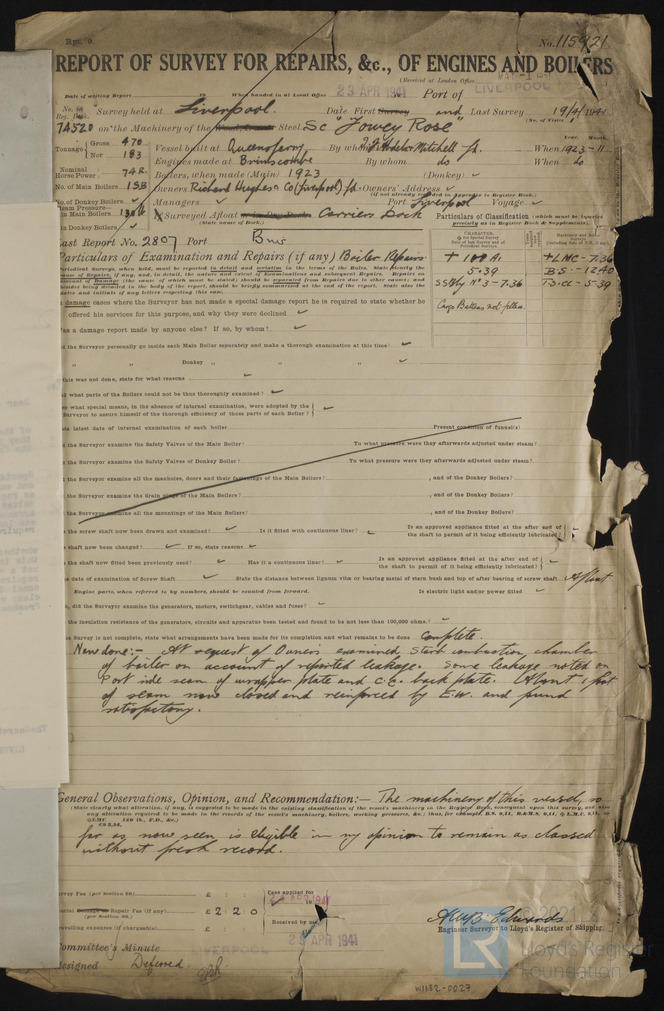 Rpt. 9.
No. 115921
REPORT OF SURVEY FOR REPAIRS, &c., OF ENGINES AND BOILERS
(Received at London Office
Date of writing Report 19 When handed in at Local Office 23 APR 1941 Port of LIVERPOOL
No. in Reg. Book. Survey held at Liverpool Date First Survey and Last Survey 19/4/1941
(No. of Visits)
74520 on the Machinery of the Steel Sc "Fowey Rose"
Tonnage Gross 470 Net 183
Vessel built at Queensferry By whom When 1923-11
Year. Month.
Engines made at Brimscombe By whom do When do
Nominal Horse Power 74R. Boilers, when made (Main) 1923 (Donkey) ✓
No. of Main Boilers 1SB Owners Richard Hughes & Co (Liverpool) Ld. Owners' Address ✓
(if not already recorded in Appendix to Register Book.)
No. of Donkey Boilers ✓ Managers ✓ Port Liverpool Voyage ✓
Steam Pressure in Main Boilers 130 lb If Surveyed Afloat or in Dry Dock Carriers Dock
(State name of Dock.)
in Donkey Boilers ✓
Particulars of Classification (which must be inserted precisely as in Register Book & Supplement).
Last Report No. 2807 Port
Particulars of Examination and Repairs (if any) Boiler Repairs
+ 100 A1
5.39
SSNo 3-7.36
+LMC-7.36
BS-12.40
TS.CL-5.39
Cargo Battens not fitted
damage cases where the Surveyor has not made a special damage report he is required to state whether he
offered his services for this purpose, and why they were declined ✓
as a damage report made by anyone else? If so, by whom? ✓
the Surveyor personally go inside each Main Boiler separately and make a thorough examination at this time? ✓
" Donkey " " " " ✓
this was not done, state for what reasons ✓
what parts of the Boilers could not be thus thoroughly examined? ✓
what special means, in the absence of internal examination, were adopted by the
Surveyor to assure himself of the thorough efficiency of those parts of each Boiler? ✓
latest date of internal examination of each boiler Present condition of funnel(s)
the Surveyor examine the Safety Valves of the Main Boiler? To what pressure were they afterwards adjusted under steam?
the Surveyor examine the Safety Valves of Donkey Boiler? To what pressure were they afterwards adjusted under steam?
the Surveyor examine all the manholes, doors and their fastenings of the Main Boilers? , and of the Donkey Boilers?
the Surveyor examine the drain plugs of the Main Boilers? , and of the Donkey Boilers?
the Surveyor examine all the mountings of the Main Boilers? , and of the Donkey Boilers?
the screw shaft now been drawn and examined? ✓ Is it fitted with continuous liner? ✓ Is an approved appliance fitted at the after end of the shaft to permit of it being efficiently lubricated? ✓
shaft now been changed? ✓ If so, state reasons ✓
the shaft now fitted been previously used? ✓ Has it a continuous liner? ✓ Is an approved appliance fitted at the after end of the shaft to permit of it being efficiently lubricated? ✓
date of examination of Screw Shaft ✓ State the distance between lignum vitæ or bearing metal of stern bush and top of after bearing of screw shaft Afloat
Engine parts, when referred to by numbers, should be counted from forward. Is electric light and/or power fitted ✓
did the Surveyor examine the generators, motors, switchgear, cables and fuses? ✓
the insulation resistance of the generators, circuits and apparatus been tested and found to be not less than 100,000 ohms. ✓
Survey is not complete, state what arrangements have been made for its completion and what remains to be done Complete.
Now done:- At request of Owners examined Starbd combustion chamber
of boiler on account of reported leakage. Some leakage noted on
Port side seam of wrapper plate and C.C. back plate. About 1 foot
of seam now closed and reinforced by E.W. and found
satisfactory.
General Observations, Opinion, and Recommendation:- The machinery of this vessel, so
(State clearly what alteration, if any, is suggested to be made in the existing classification of the vessel's machinery in the Register Book, consequent upon this survey, and also
any alteration required to be made in the records of the vessel's machinery, boilers, working pressures, &c.; thus, for example, B.S. 9,11, B.&M.S. 9,11,
far as now seen is eligible in my opinion to remain as classed
without fresh record.
Survey Fee (per Section 29) £ : :
Special Damage or Repair Fee (if any) £ 2 : 2 : 0
(per Section 29.)
Travelling expenses (if chargeable) £ : :
Fees applied for
Received by me,
23 APR 1941
Edwards
Engineer Surveyor to Lloyd's Register of Shipping.
Committee's Minute LIVERPOOL 23 APR 1941
Assigned Deferred
W1182-0027
LR
Lloyd's Register
Foundation